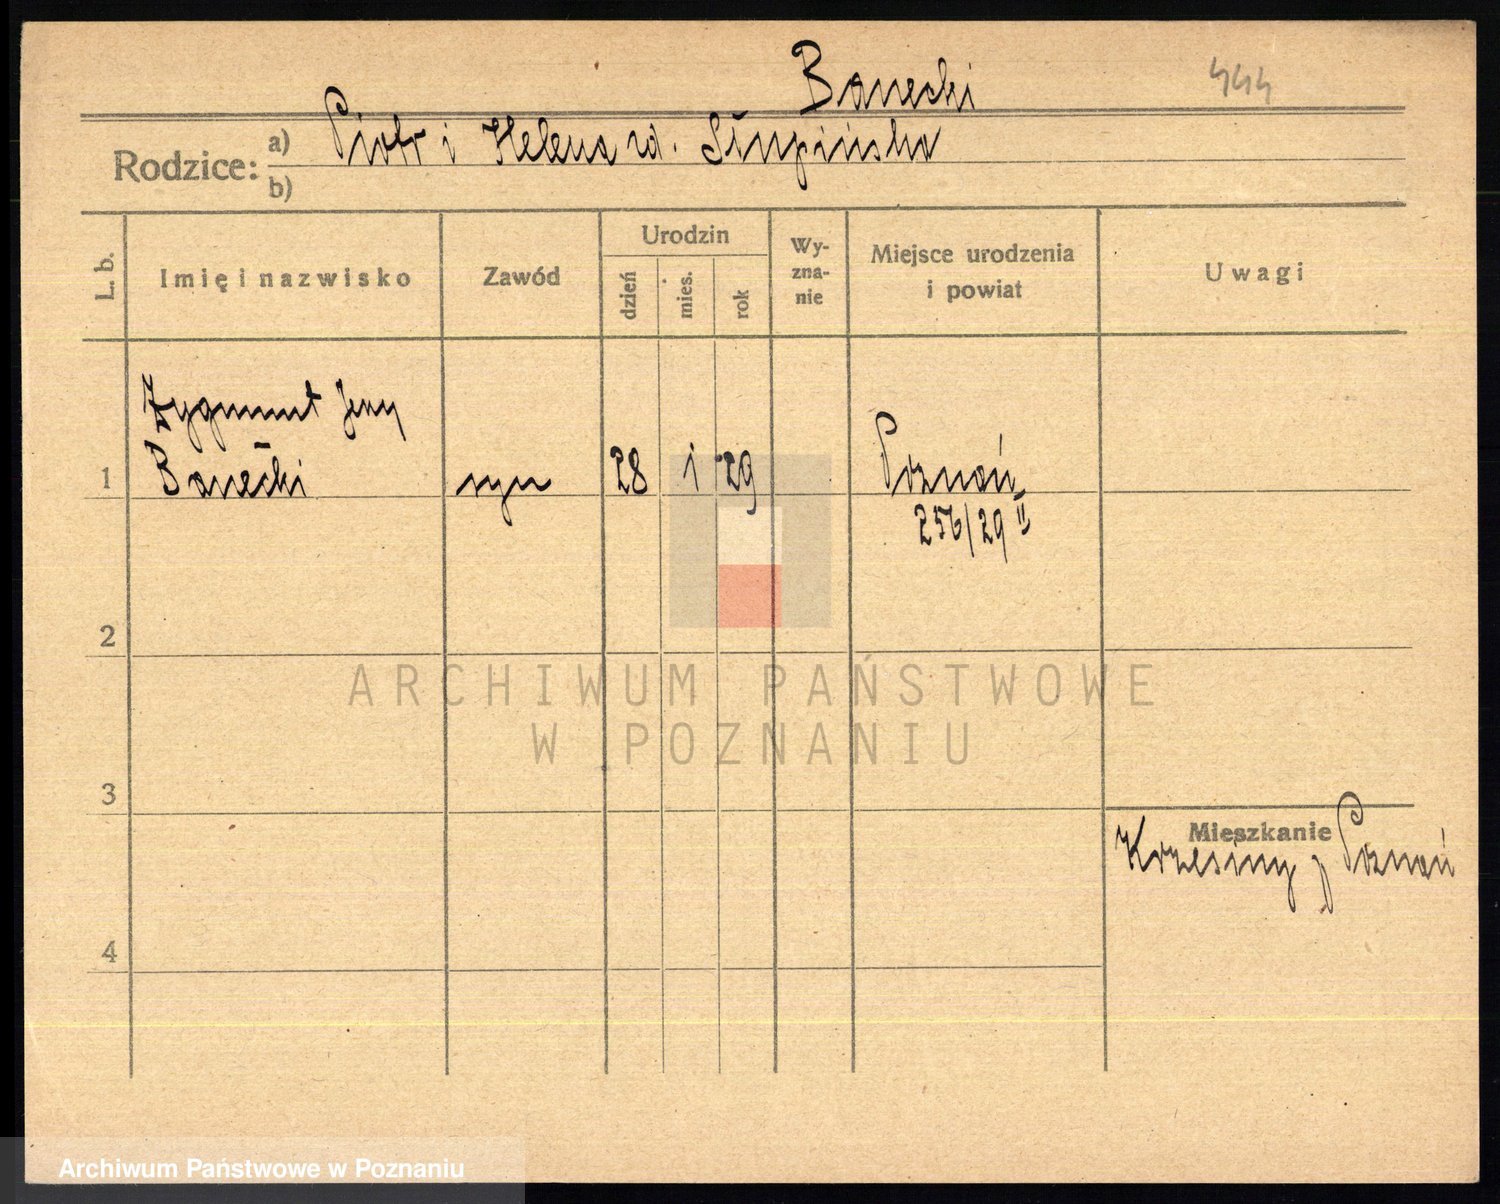 Banecki
444
Rodzice: a) Piotr i Helena zd. Słupińska
b)
L. b.
Imię i nazwisko
Zawód
Urodzin
dzień
mies.
rok
Wy-
zna-
nie
Miejsce urodzenia
i powiat
Uwagi
Zygmunt Jerzy
1 Banecki syn 28 1 29 Poznań
256/29 II
2
ARCHIWUM PAŃSTWOWE
W POZNANIU
3
Mieszkanie
Krzesiny p Poznań
4
Archiwum Państwowe w Poznaniu